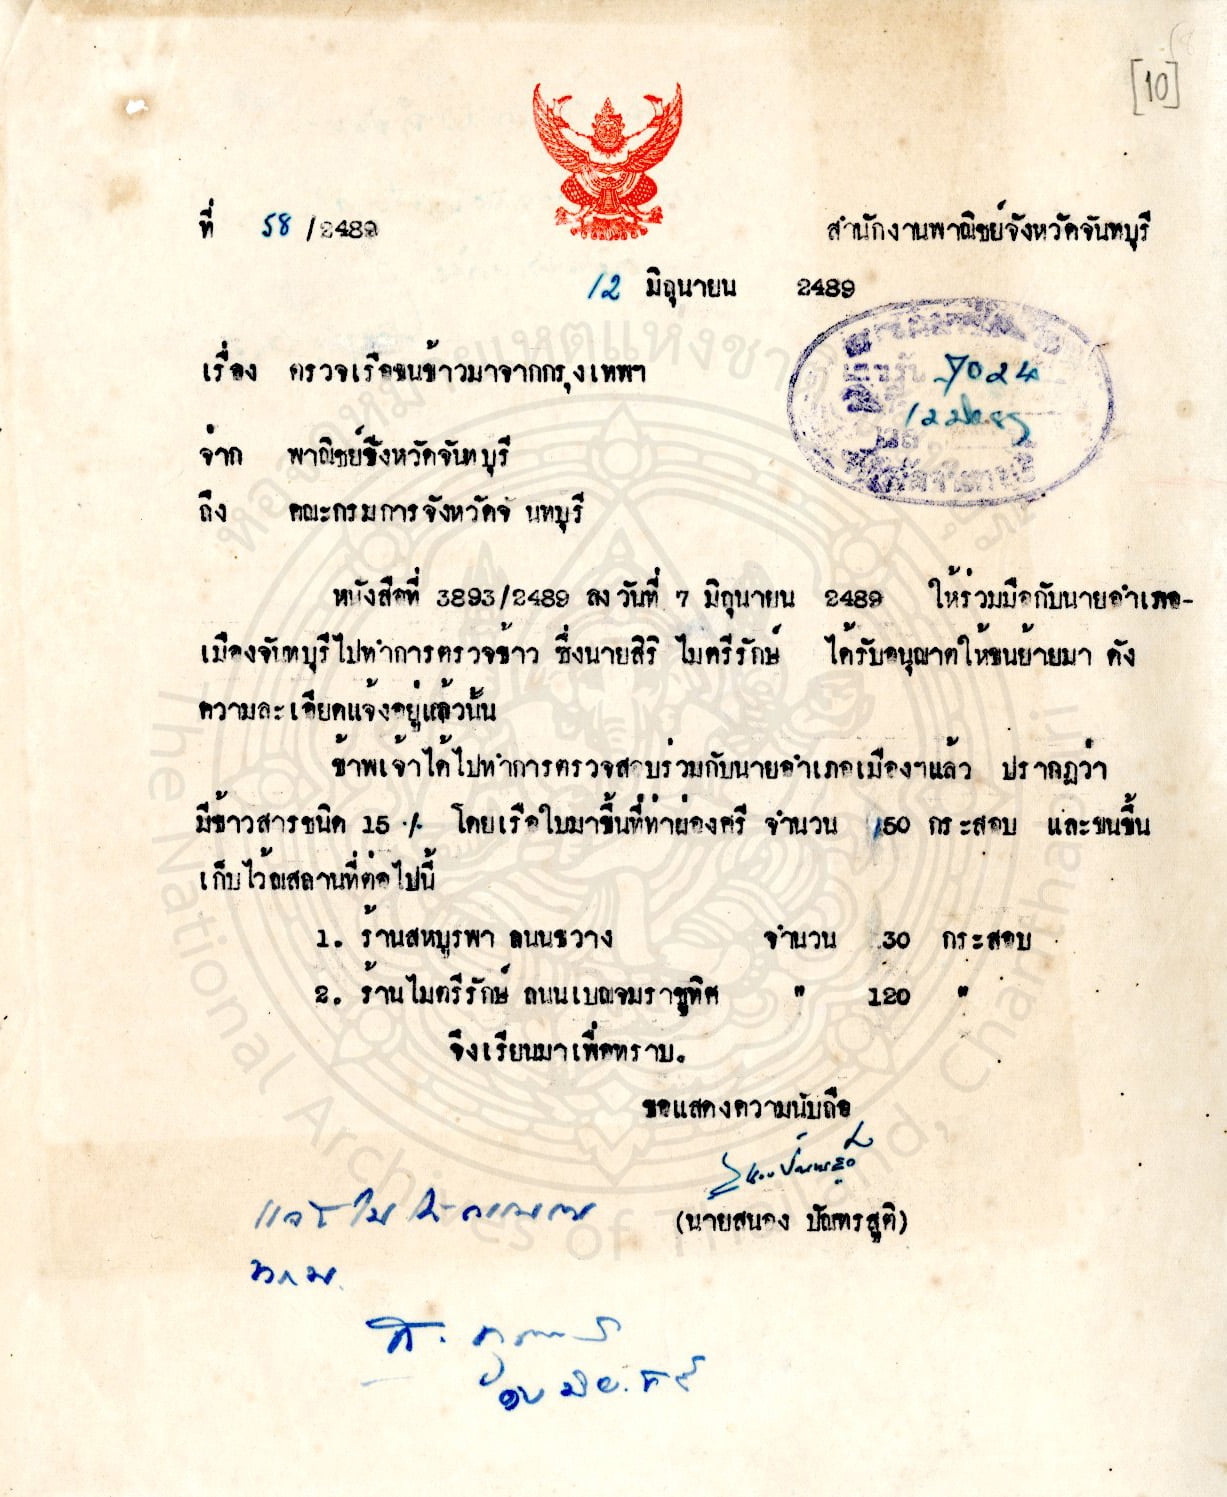 [10]
ที่ 58 /2489 สำนักงานพาณิชย์จังหวัดจันทบุรี
12 มิถุนายน 2489
เรื่อง ตรวจเรือขนข้าวมาจากกรุงเทพฯ
7024
จาก พาณิชย์จังหวัดจันทบุรี
ถึง คณะกรมการจังหวัดจันทบุรี
หนังสือที่ 3893/2489 ลงวันที่ 7 มิถุนายน 2489 ให้ร่วมมือกับนายอำเภอ-
เมืองจันทบุรีไปทำการตรวจข้าว ซึ่งนายสิริ ไมตรีรักษ์ ได้รับอนุญาตให้ขนย้ายมา ดัง
ความละเอียดแจ้งอยู่แล้วนั้น
ข้าพเจ้าได้ไปทำการตรวจสอบร่วมกับนายอำเภอเมืองฯแล้ว ปรากฏว่า
มีข้าวสารชนิด 15 ./. โดยเรือใบมาขึ้นที่ท่าย่องศรี จำนวน 150 กระสอบ และขนขึ้น
เก็บไว้ณสถานที่ต่อไปนี้
1. ร้านสหบูรพา ถนนขวาง จำนวน 30 กระสอบ
2. ร้านไมตรีรักษ์ ถนนเบญจมราชูทิศ " 120 "
จึงเรียนมาเพื่อทราบ.
ขอแสดงความนับถือ
(นายสนอง ปัณฑรสูติ)
หอจดหมายเหตุแห่งชาติ
The National Archives of Thailand, Chanthaburi